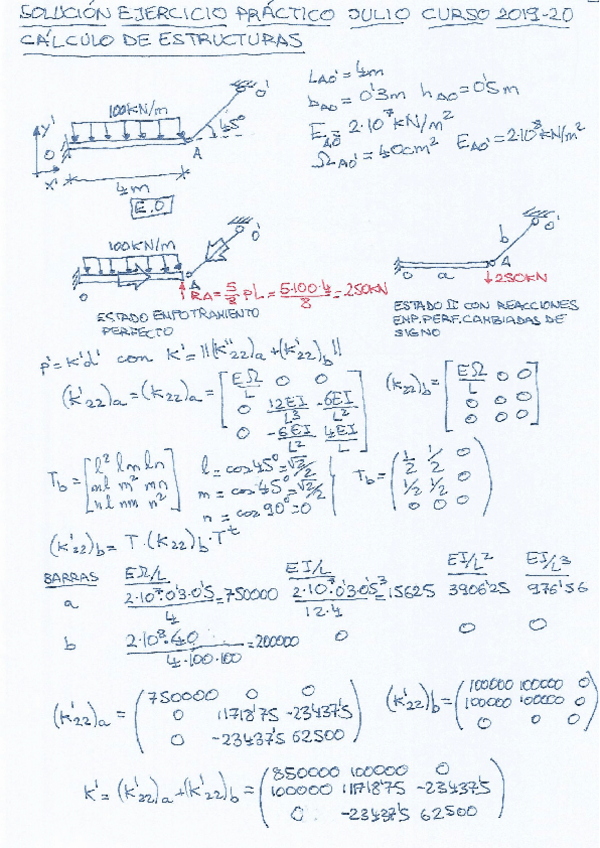 SOLUCIÓN EJERCICIO PRÁCTICO JULIO CURSO 2019-20
CÁLCULO DE ESTRUCTURAS
LAO' = 4m
bAO = 0'3m hAO = 0'5m
EAO = 2·10⁷ kN/m²
ΩAO' = 40cm² EAO' = 2·10⁸ kN/m²
100kN/m
O'
45°
Y'
O
A
X'
4m
E.O
100kN/m
O'
A
O
RA = 5/8 PL = 5·100·4/8 = 250KN
ESTADO EMPOTRAMIENTO
PERFECTO
O'
b
O a A
↓250KN
ESTADO II CON REACCIONES
EMP. PERF. CAMBIADAS DE
SIGNO
p' = K'd' con K' = ||(K'22)a + (K'22)b||
(K'22)a = (K22)a = [EΩ/L 0 0
0 12EI/L³ -6EI/L²
0 -6EI/L² 4EI/L]
(K22)b = [EΩ/L 0 0
0 0 0
0 0 0]
Tb = [l² lm ln
ml m² mn
nl nm n²]
l = cos45° = √2/2
m = cos45° = √2/2
n = cos90° = 0
Tb = (1/2 1/2 0
1/2 1/2 0
0 0 0)
(K'22)b = T·(K22)b·Tᵗ
BARRAS EΩ/L EI/L EI/L² EI/L³
a 2·10⁷·0'3·0'5/4 = 750000 2·10⁷·0'3·0'5³/12·4 = 15625 3906'25 976'56
b 2·10⁸·40/4·100·100 = 200000 0 0 0
(K'22)a = (750000 0 0
0 11718'75 -23437'5
0 -23437'5 62500)
(K'22)b = (100000 100000 0
100000 100000 0
0 0 0)
K' = (K'22)a + (K'22)b = (850000 100000 0
100000 111718'75 -23437'5
0 -23437'5 62500)